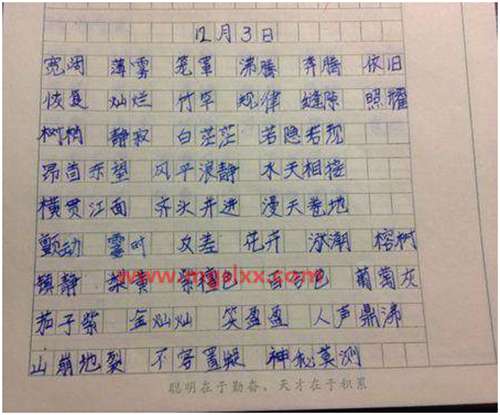 12月3日
宽阔 薄雾 笼罩 沸腾 奔腾 依旧
恢复 灿烂 竹竿 规律 缝隙 照耀
静寂 白茫茫 若隐若现
昂首东望 风平浪静 水天相接
横贯江面 齐头并进 漫天卷地
颤动 霎时 花卉 榕树
镇静 葡萄灰
茄子紫 金灿灿 笑盈盈 人声鼎沸
山崩地裂 不容置疑 神秘莫测
聪明在于勤奋、天才在于积累